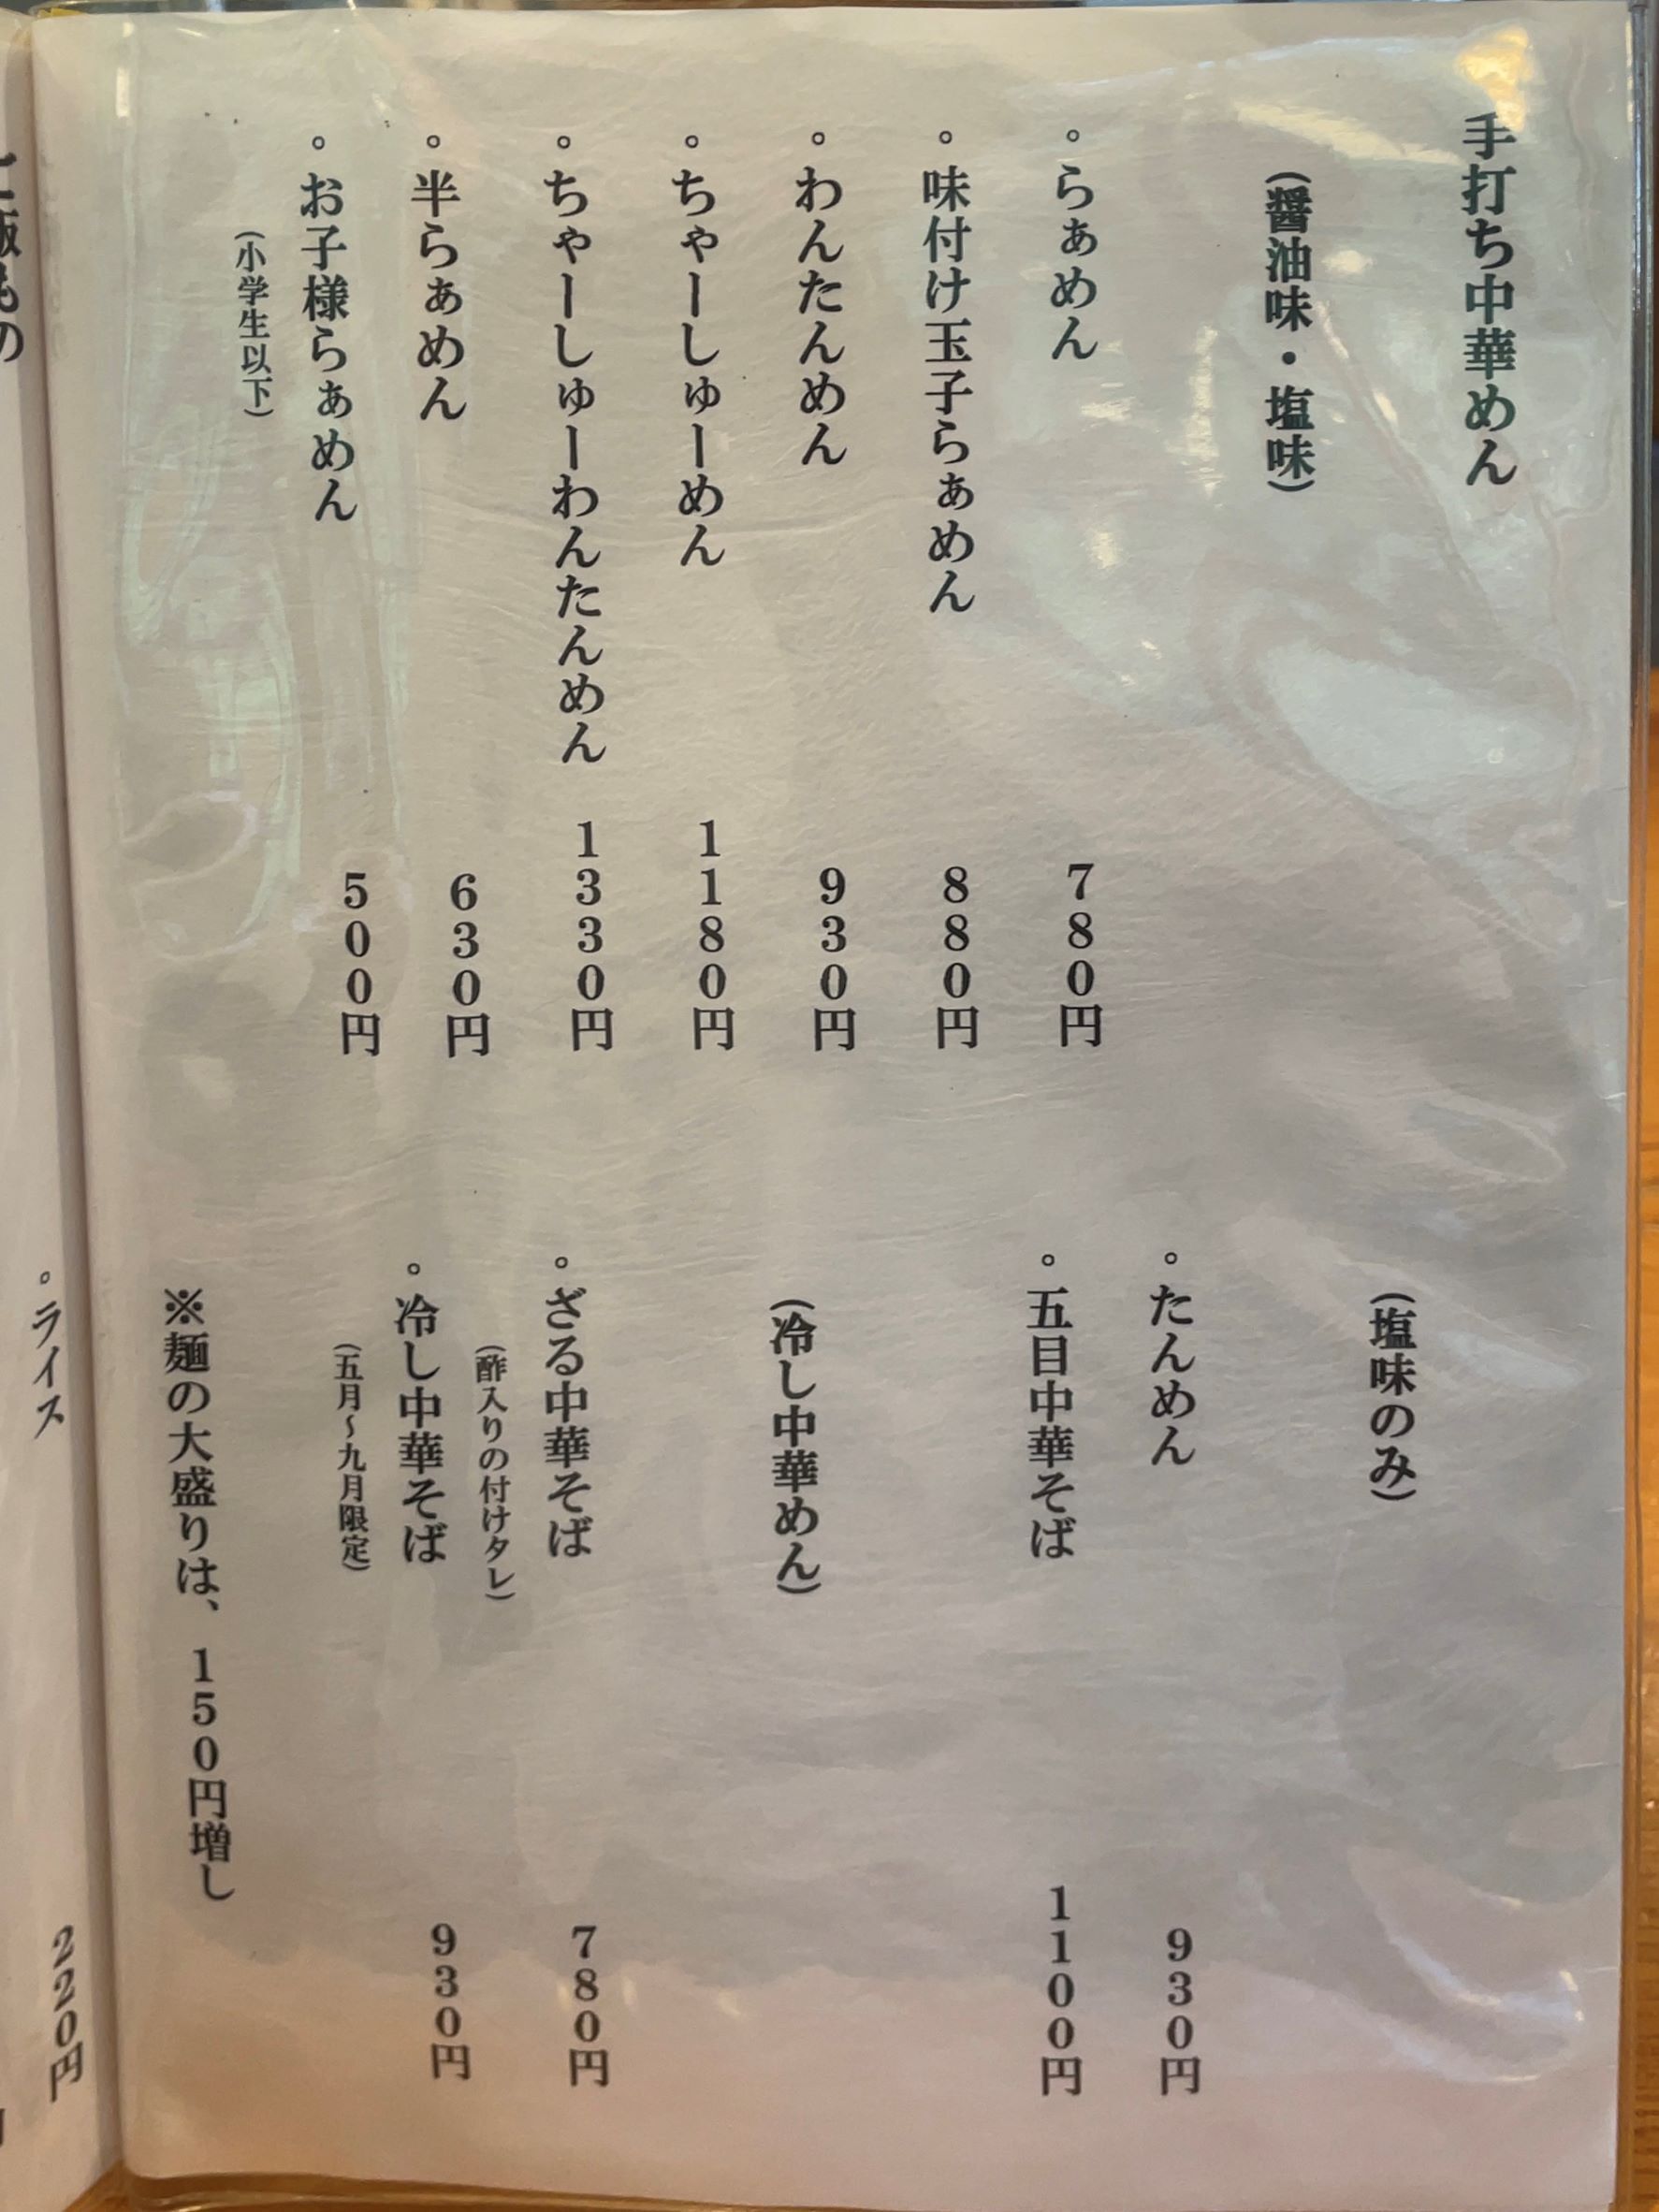 手打ち中華めん
(醤油味・塩味)
。らぁめん 780円
。味付け玉子らぁめん 880円
。わんたんめん 930円
。ちゃーしゅーめん 1180円
。ちゃーしゅーわんたんめん 1330円
。半らぁめん 630円
。お子様らぁめん 500円
(小学生以下)
(塩味のみ)
。たんめん 930円
。五目中華そば 1100円
(冷し中華めん)
。ざる中華そば 780円
(酢入りの付けタレ)
。冷し中華そば 930円
(五月～九月限定)
※麺の大盛りは、150円増し
。ライス 220円